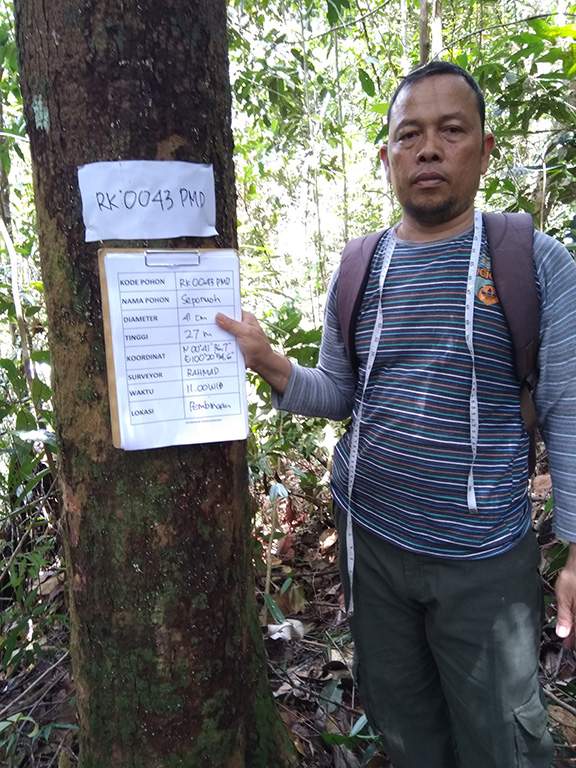 RK'0043 PMD
KODE POHON RK'0043 PMD
NAMA POHON Seporuoh
DIAMETER 41 cm
TINGGI 27 m
KOORDINAT N 00°41'
E 100°20'
SURVEYOR RAHMAD
WAKTU 11.00 WIB
LOKASI